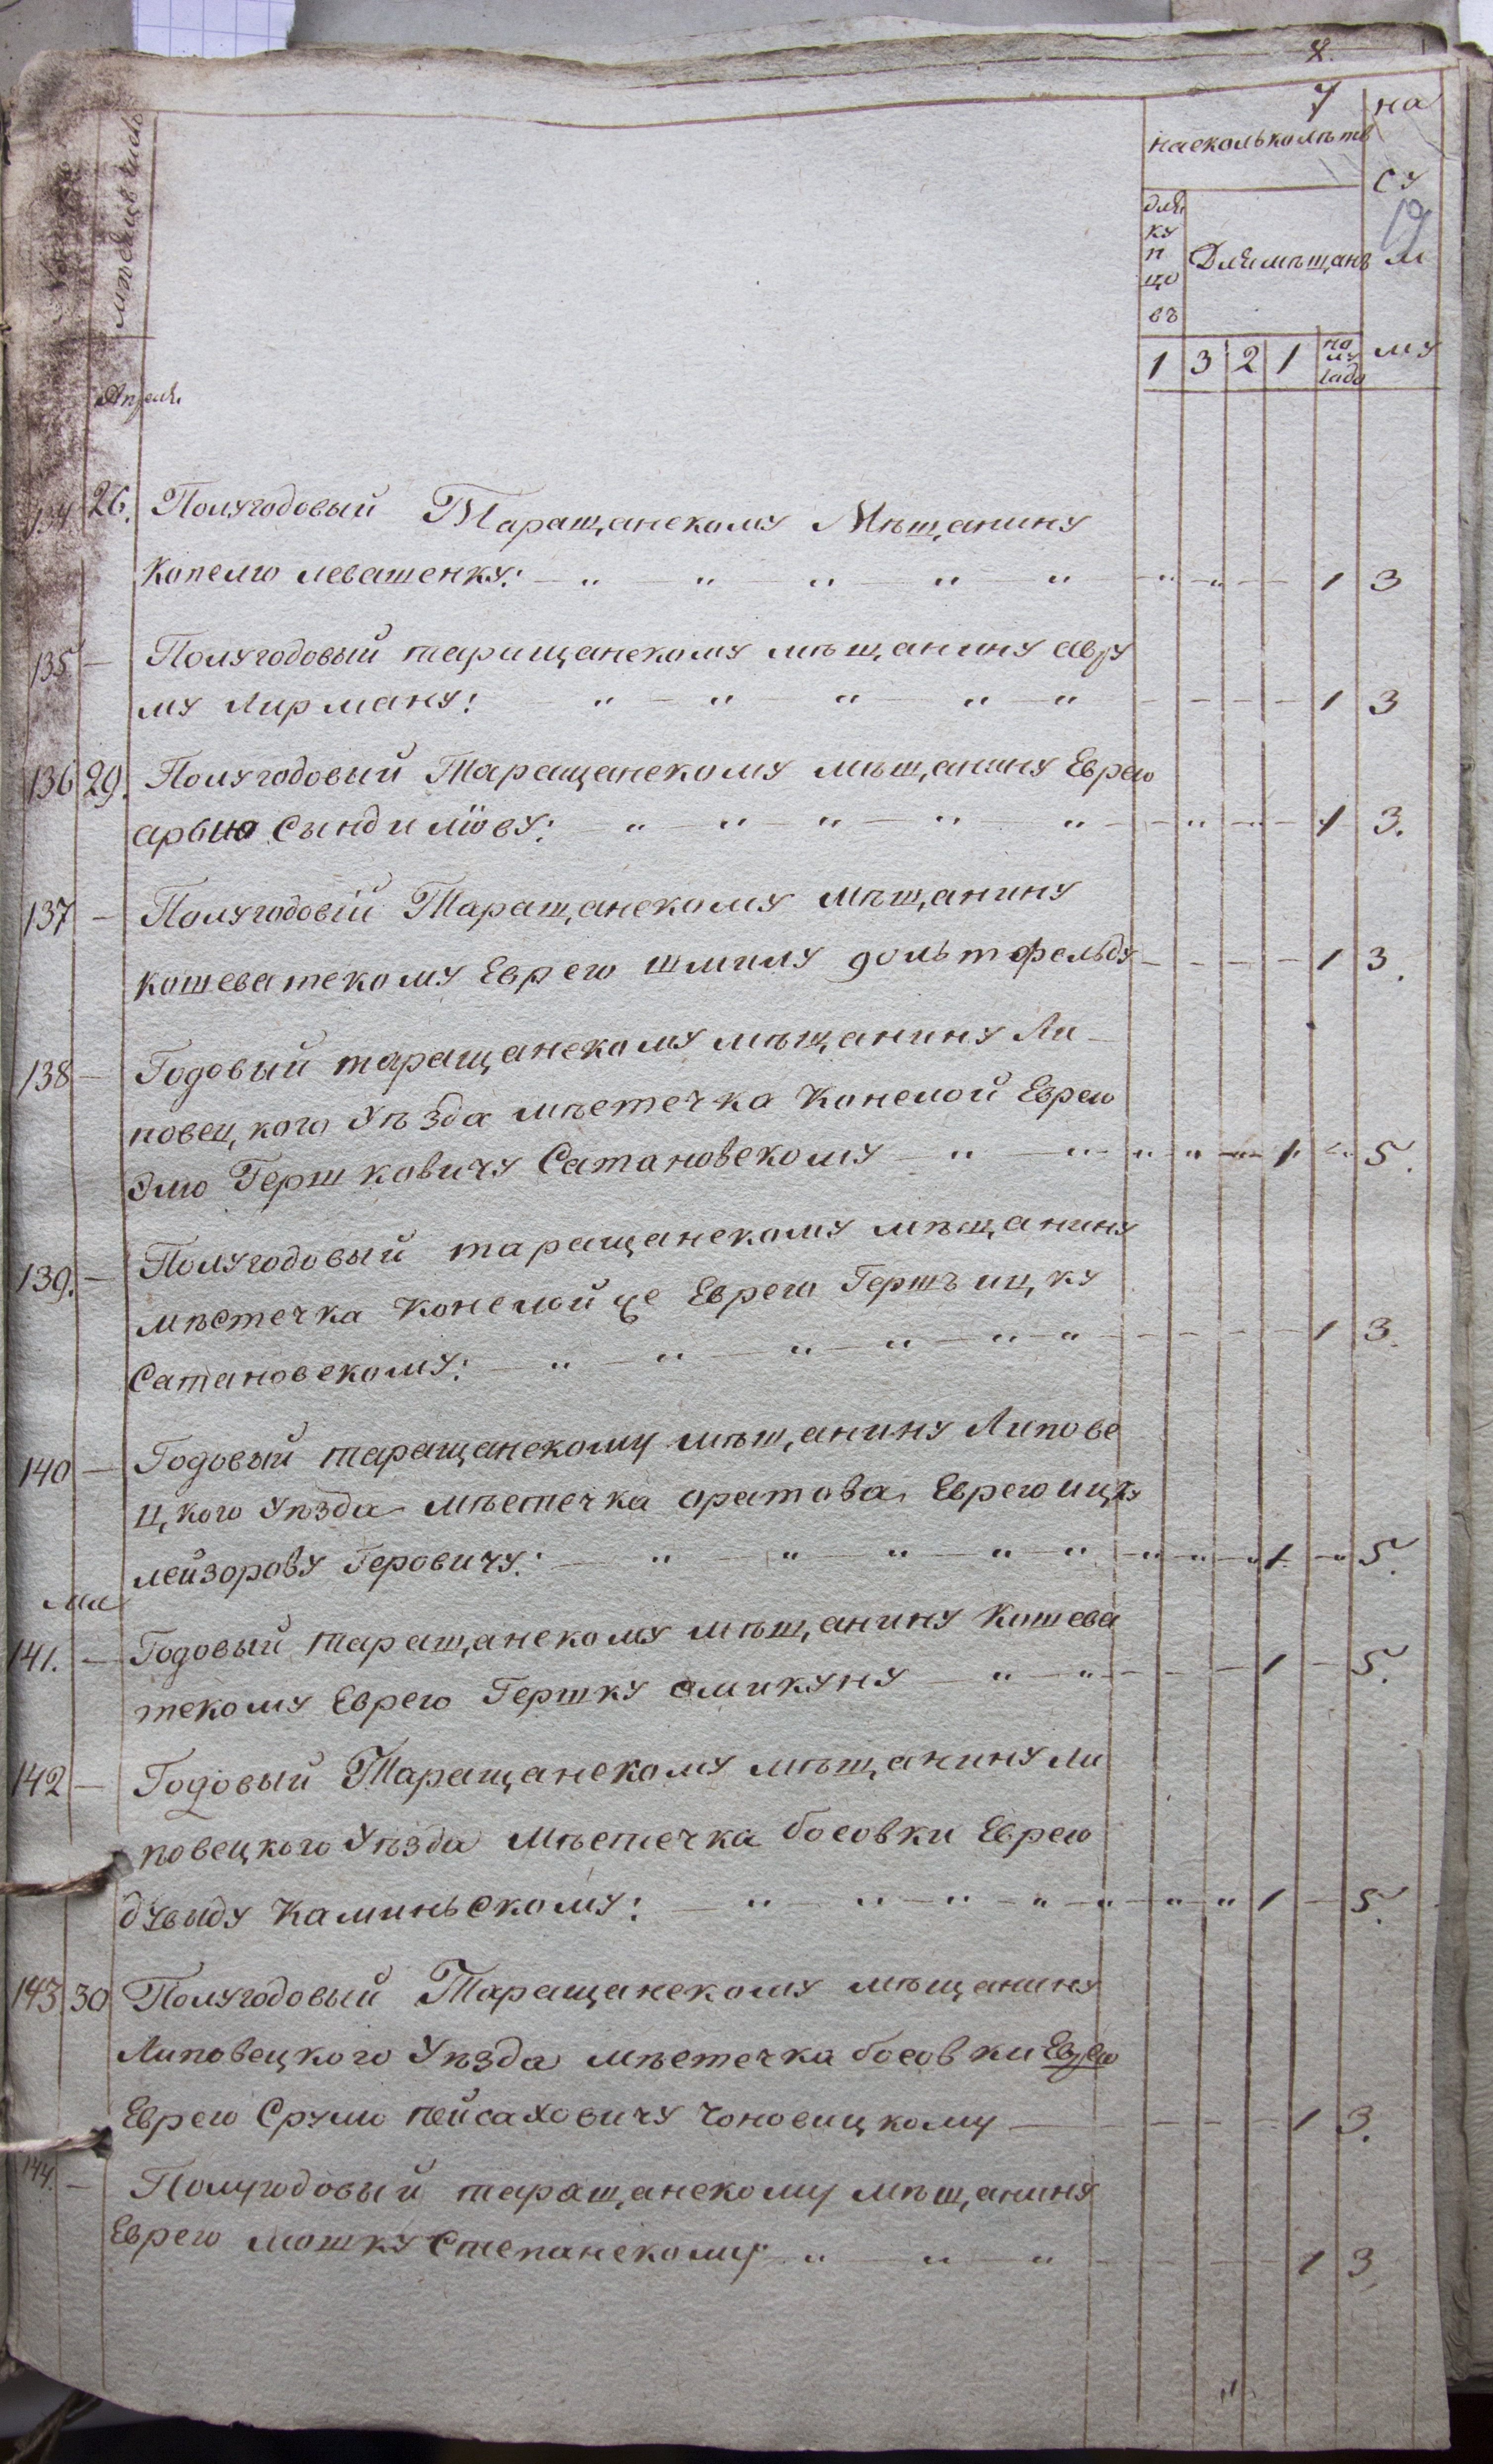 8.
7
на
на сколько лѣтъ
су
19
для
ку
п
цо
въ
Для мѣщанъ
м
му
1 3 2 1 по лу года
мѣсяцъ число
Апреля
134 26. Полугодовый Таращанскому Мѣщанину
Копелю левашенку: — „ „ „ „ — „ — „ — „ — — 1 3
135 — Полугодовый таращанскому мѣщанину авру
му Лирману: — „ — „ — „ — „ — „ — — — — 1 3
136 29. Полугодовый Таращанскому мѣщанину Еврею
арыю Сындилюву: — „ — „ — „ — „ — „ — „ — „ — 1 3.
137 — Полугодовій Таращанскому мѣщанину
кошеватскому Еврею шмилу гольтфельду — — — — 1 3.
138 — Годовый таращанскому мѣщанину Ли-
повецкого Уѣзда мѣстечка Конелой Еврею
Элю Гершковичу Сатановскому — „ — „ — „ „ — „ 1. „ 5.
139. — Полугодовый таращанскому мѣщанину
мѣстечка конелойце Еврею Гершъ ицку
Сатановскому: — „ — „ — „ — „ — „ — „ — — — — 1 3.
140 — Годовый таращанскому мѣщанину Липове
цкого Уѣзда мѣстечка оратова Еврею ицку
лейзорову Геровичу: — „ — „ — „ — „ — „ — „ — „ — „ 1. — „ 5.
Ма
141. — Годовый таращанскому мѣщанину Кошева
тскому Еврею Гершку смикуну — „ — „ — — — 1 — 5.
142 — Годовый Таращанскому мѣщанину Ли
повецкого Уѣзда Мѣстечка босовки Еврею
дувыду Каминьскому: — „ — „ — „ — „ — „ — „ — „ 1 — 5.
143 30 Полугодовый Таращанскому мѣщанину
Липовецкого Уѣзда мѣстечка босовки Еврею
Еврею Срулю пейсаховичу Чоновицкому — — — — 1 3.
144. — Полугодовый таращанскому мѣщанину
Еврею мошку Степанскому „ — „ — „ — — — — 1 3.